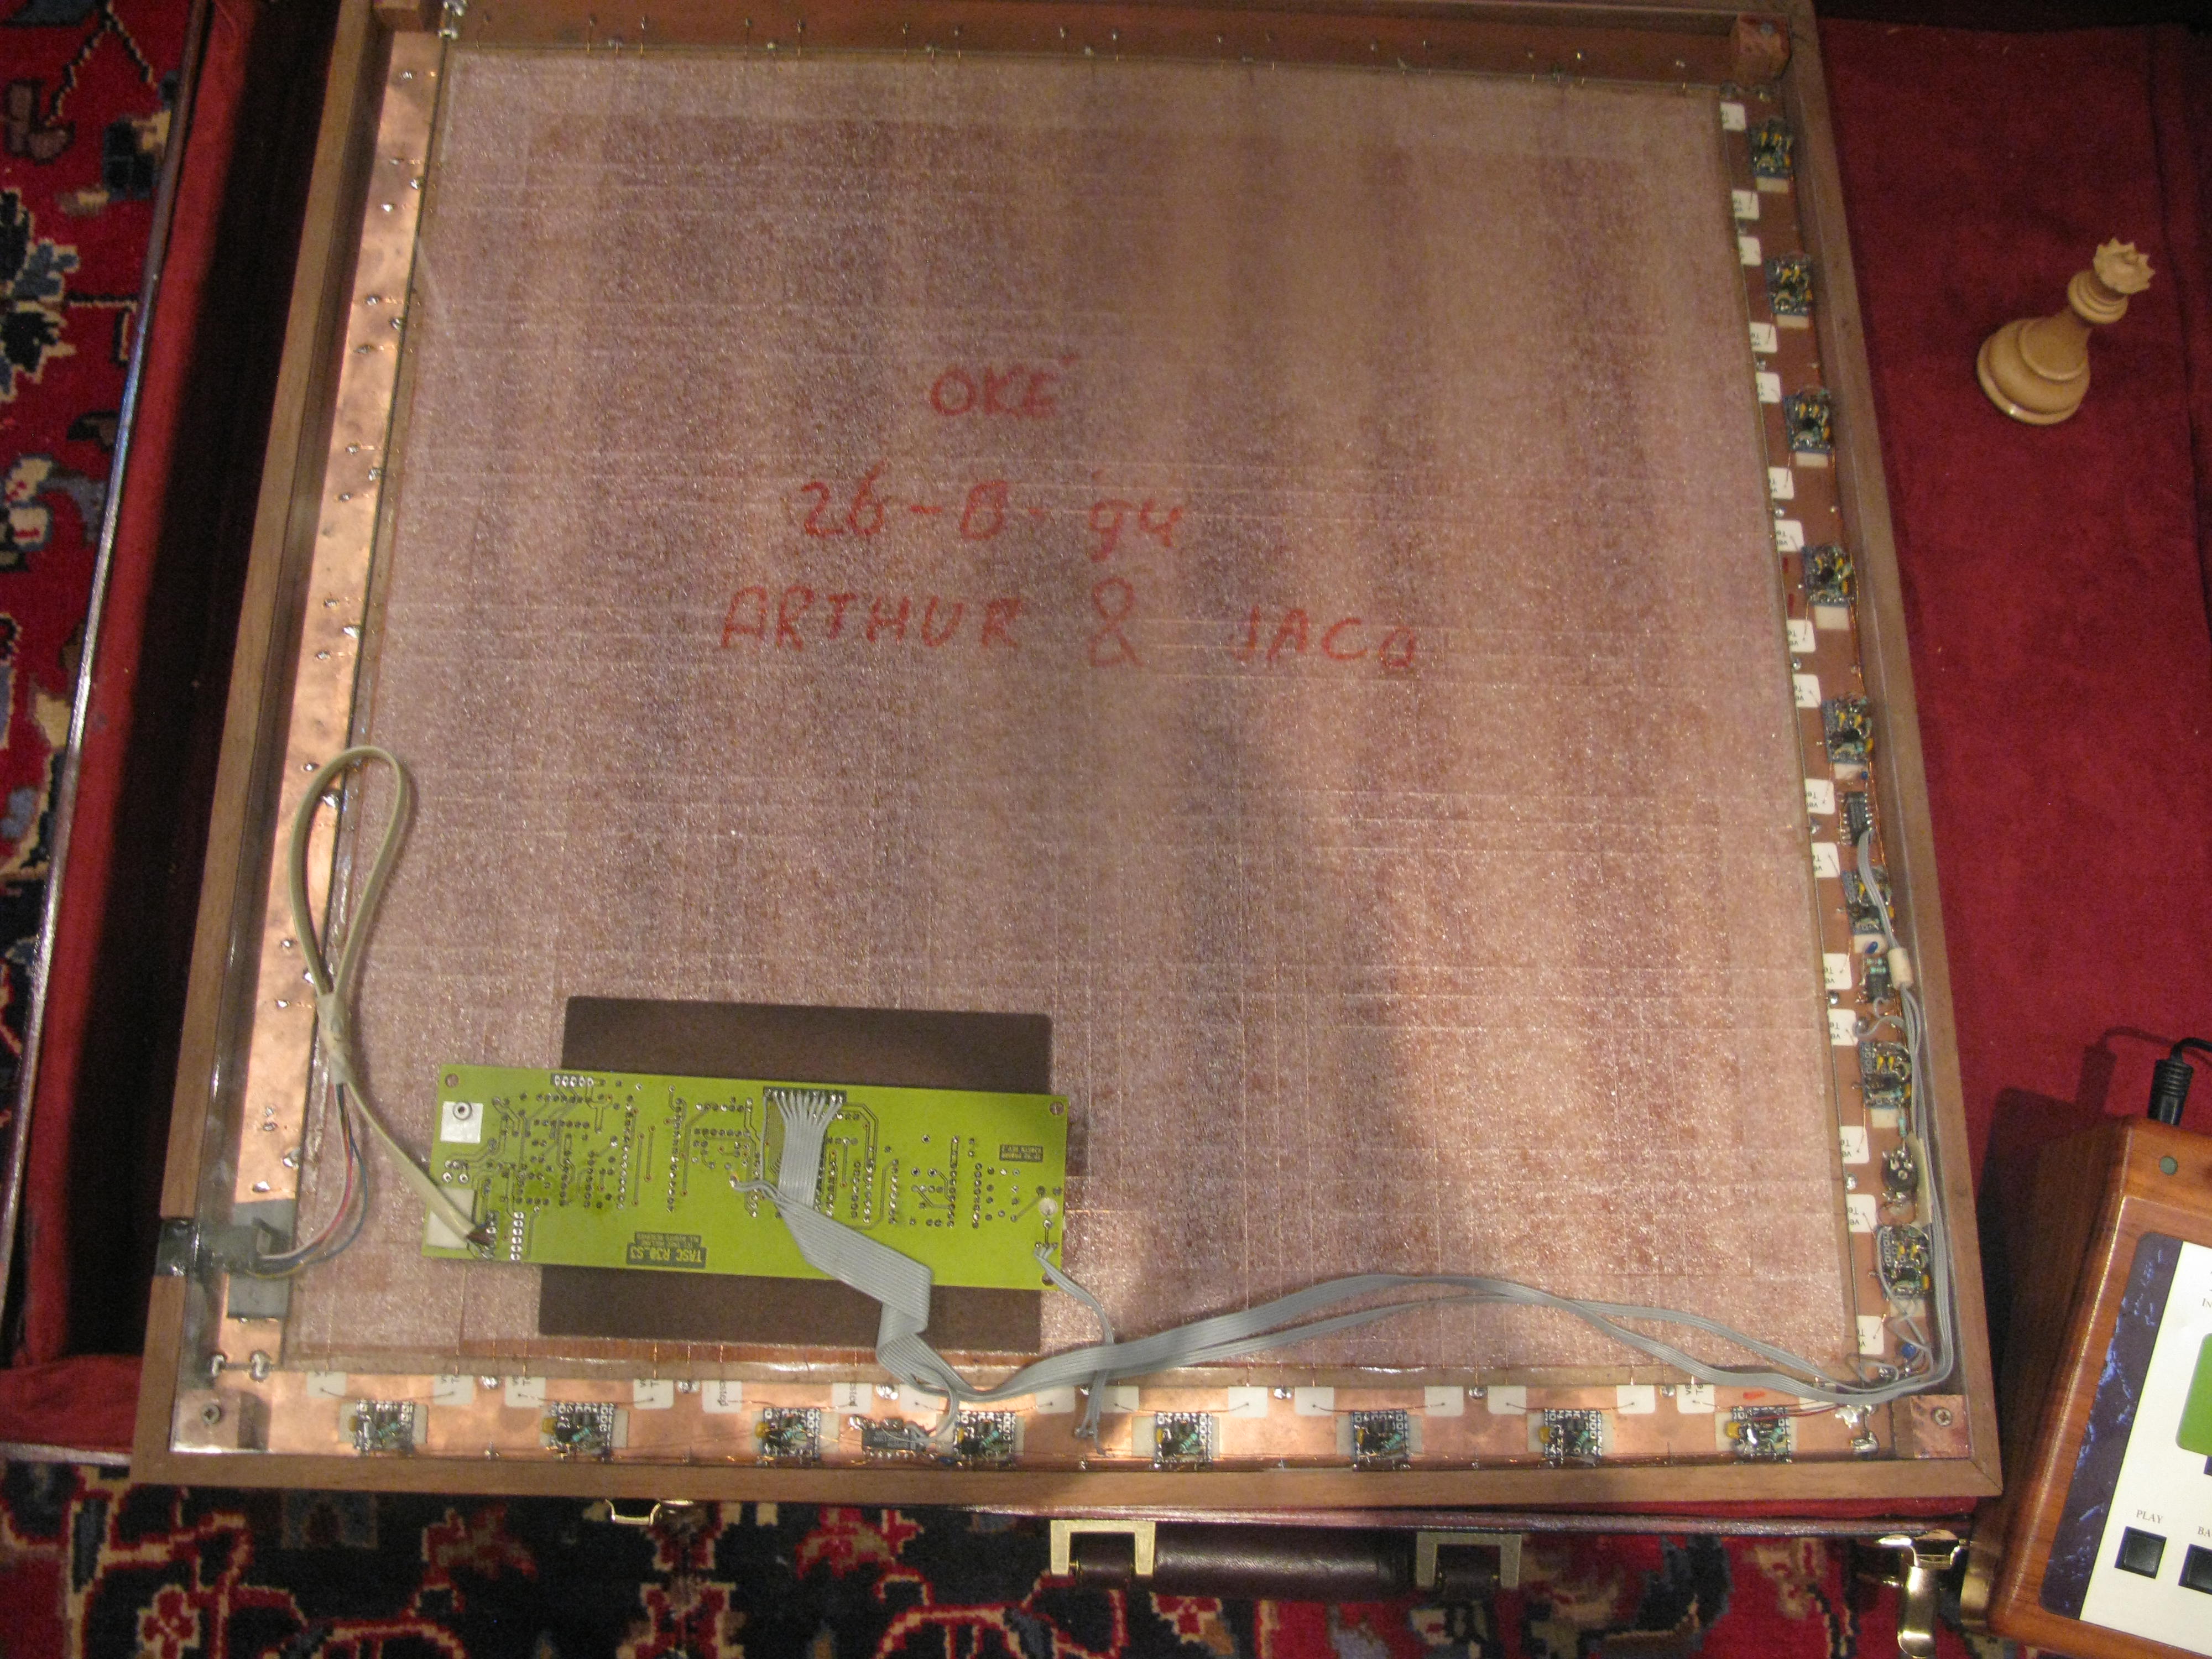 OKÉ
26-8-'94
ARTHUR & JACQ
TASC R30_S3
PLAY
BA